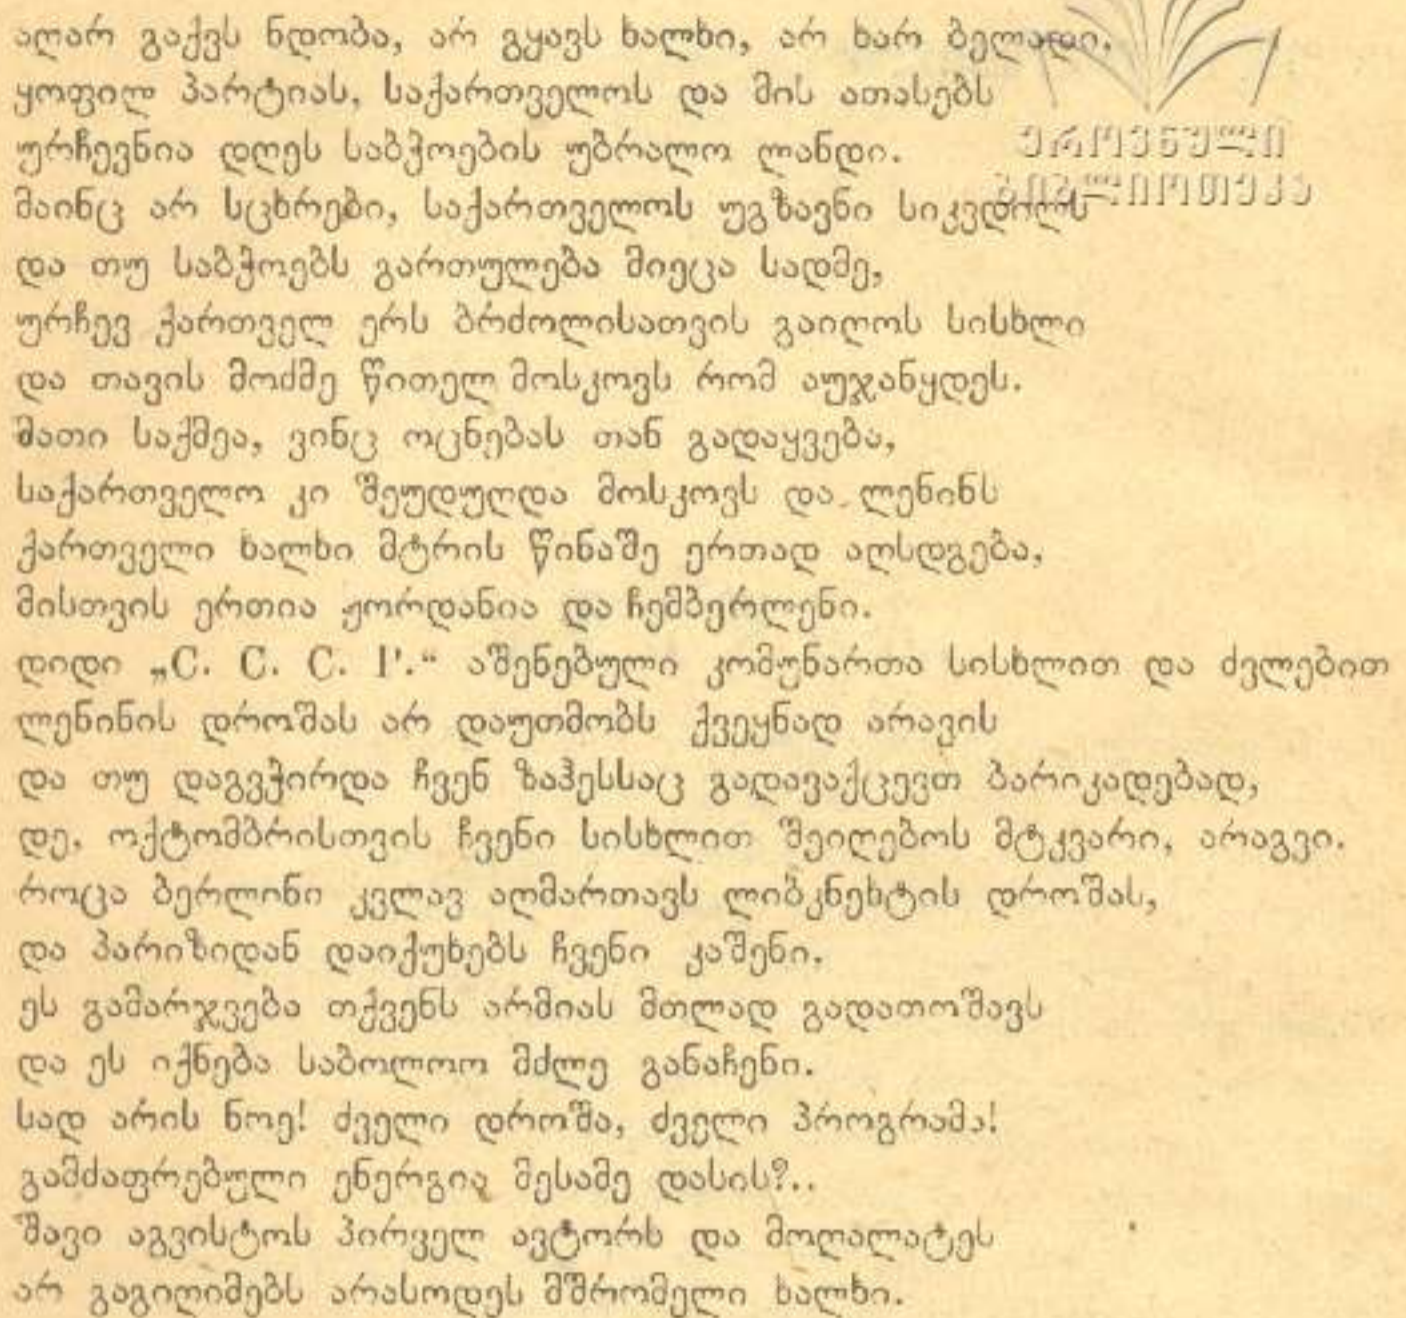 აღარ გაქვს ნდობა, არ გყავს ხალხი, არ ხარ ბელადი,
ყოფილ პარტიას, საქართველოს და მის ათასებს
ურჩევნია დღეს საბჭოების უბრალო ლანდი.
ეროვნული
ბიბლიოთეკა
მაინც არ სცხრები, საქართველოს უგზავნი სიკვდილს
და თუ საბჭოებს გართულება მიეცა სადმე,
ურჩევ ქართველ ერს ბრძოლისათვის გაიღოს სისხლი
და თავის მოძმე წითელ მოსკოვს რომ აუჯანყდეს.
მათი საქმეა, ვინც ოცნებას თან გადაყვება,
საქართველო კი შეუდუღდა მოსკოვს და ლენინს
ქართველი ხალხი მტრის წინაშე ერთად აღსდგება,
მისთვის ერთია ჟორდანია და ჩემბერლენი.
დიდი „С. С. С. Р.“ აშენებული კომუნართა სისხლით და ძვლებით
ლენინის დროშას არ დაუთმობს ქვეყნად არავის
და თუ დაგვჭირდა ჩვენ ზაჰესსაც გადავაქცევთ ბარიკადებად,
დე, ოქტომბრისთვის ჩვენი სისხლით შეიღებოს მტკვარი, არაგვი.
როცა ბერლინი კვლავ აღმართავს ლიბკნეხტის დროშას,
და პარიზიდან დაიქუხებს ჩვენი კაშენი.
ეს გამარჯვება თქვენს არმიას მთლად გადათოშავს
და ეს იქნება საბოლოო მძლე განაჩენი.
სად არის ნოე! ძველი დროშა, ძველი პროგრამა!
გამძაფრებული ენერგია მესამე დასის?..
შავი აგვისტოს პირველ ავტორს და მოღალატეს
არ გაგიღიმებს არასოდეს მშრომელი ხალხი.